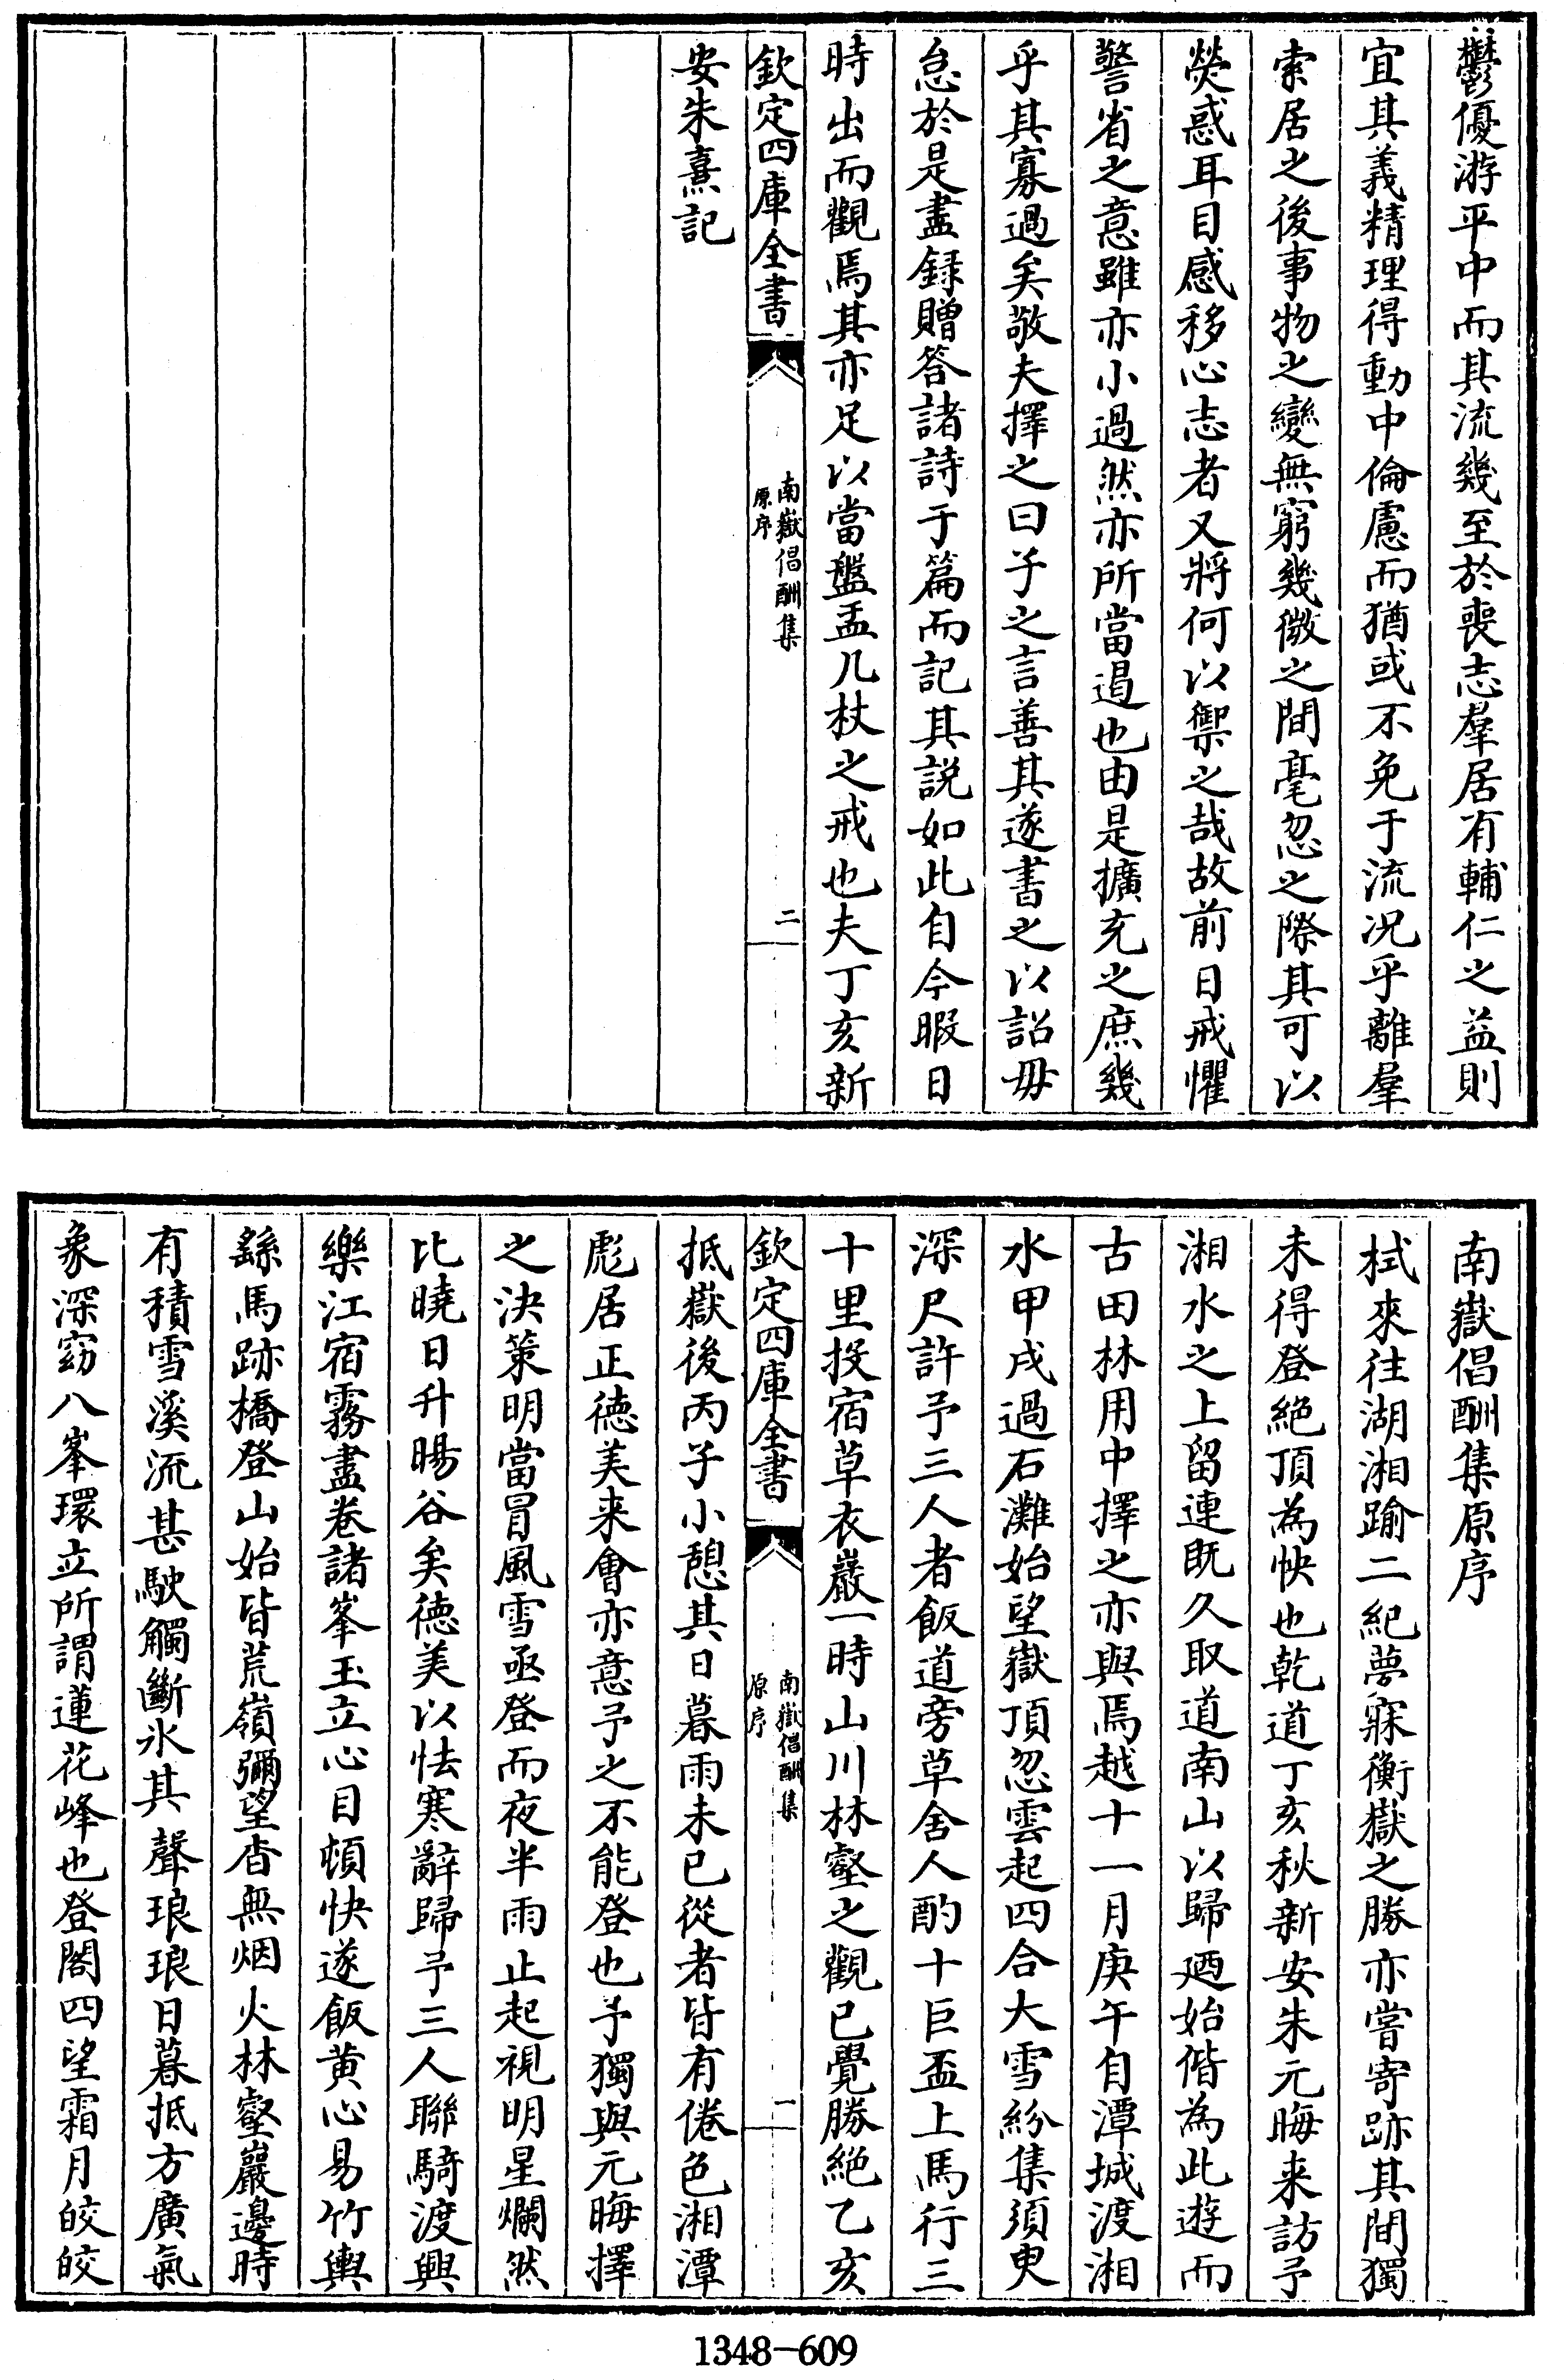 鬱優游平中而其流幾至於喪志羣居有輔仁之益則
宜其義精理得動中倫慮而猶或不免于流况乎離羣
索居之後事物之變無窮幾微之間毫忽之際其可以
熒惑耳目感移心志者又將何以禦之哉故前日戒懼
警省之意雖亦小過然亦所當過也由是擴充之庶幾
乎其寡過矣敬夫擇之曰子之言善其遂書之以詔毋
怠於是盡録贈答諸詩于篇而記其説如此自今暇日
時出而觀焉其亦足以當盤盂几杖之戒也夫丁亥新
欽定四庫全書
南嶽倡酬集
原序
二
安朱熹記
南嶽倡酬集原序
栻來往湖湘踰二紀夢寐衡嶽之勝亦嘗寄跡其間獨
未得登絶頂為怏也乾道丁亥秋新安朱元晦来訪予
湘水之上留連既久取道南山以歸廼始偕為此遊而
古田林用中擇之亦與焉越十一月庚午自潭城渡湘
水甲戌過石灘始望嶽頂忽雲起四合大雪紛集須臾
深尺許予三人者飯道旁草舍人酌十巨盃上馬行三
十里投宿草衣巖一時山川林壑之觀已覺勝絶乙亥
欽定四庫全書
南嶽倡酬集
原序
一
抵嶽後丙子小憩其日暮雨未已從者皆有倦色湘潭
彪居正徳美来會亦意予之不能登也予獨與元晦擇
之決策明當冒風雪亟登而夜半雨止起視明星爛然
比曉日升暘谷矣徳美以怯寒辭歸予三人聯騎渡興
樂江宿霧盡卷諸峯玉立心目頓快遂飯黄心易竹輿
繇馬跡橋登山始皆荒嶺彌望杳無烟火林壑巖邊時
有積雪溪流甚駛觸斷氷其聲琅琅日暮抵方廣氣
象深窈八峯環立所謂蓮花峰也登閣四望霜月皎皎
1348-609